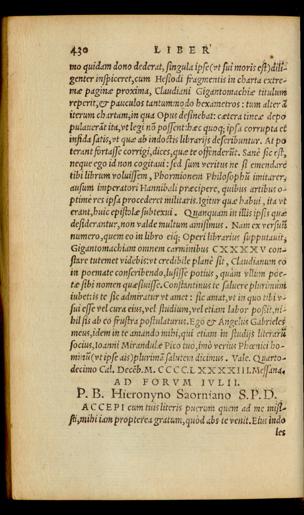 430 LIBER
mo quidam dono dederat, singula ipse (vt sui moris est) dili-
genter inspiceret, cum Hesiodi fragmentis in charta extre-
mæ paginæ proxima, Claudiani Gigantomachiæ titulum
reperit, & pauculos tantummodo hexametros: tum alter
iterum chartam, in qua Opus desinebat: cætera tineæ depo
pulauerāt ita, vt legi nō possent: hæc quoq; ipsa corrupta et
infida satis, vt quæ ab indoctis librarijs describuntur. At po
terant fortasse corrigi, dices, quæ te offenderūt. Sanè sic est,
neque ego id non cogitaui: sed sum veritus ne si emendare
tibi librum voluissem, Phormionem Philosophū imitarer,
ausum imperatori Hannibali præcipere, quibus artibus o-
ptime res ipsa procederet militaris. Igitur quæ habui, ita vt
erant, huic epistolæ subtexui. Quanquam in illis ipsis quæ
desiderantur, non valde multum amisimus. Nam ex versuū
numero, quem eo in libro eiq; Operi librarius supputauit,
Gigantomachiam omnem carminibus CXXXXV con-
stare tutemet videbis: vt credibile planè sit, Claudianum eo
in poemate conscribendo, lusisse potius, quàm vllum poe-
tæ sibi nomen quæsiuisse. Constantinus te saluere plurimum
iubet: is te sic admiratur vt amet: sic amat, vt in quo tibi v-
sui esse vel cura eius, vel studium, vel etiam labor possit, ni-
hil sis ab eo frustra postulaturus. Ego & Angelus Gabrieles
meus, idem in te amando mihi, qui etiam in studijs literarū
socius, Ioanni Mirandulæ Pico tuo, imò verius Phœnici ho-
minū (vt ipse ais) plurimā salutem dicimus. Vale. Quarto-
decimo Cal. Decēb. M. CCCCLXXXXIII. Messana.
AD FORVM IVLII.
P. B. Hieronymo Saorniano S.P.D.
ACCEPI cum tuis literis puerum quem ad me misi-
sti, mihi iam propterea gratum, quòd abs te venit. Eius indo
les